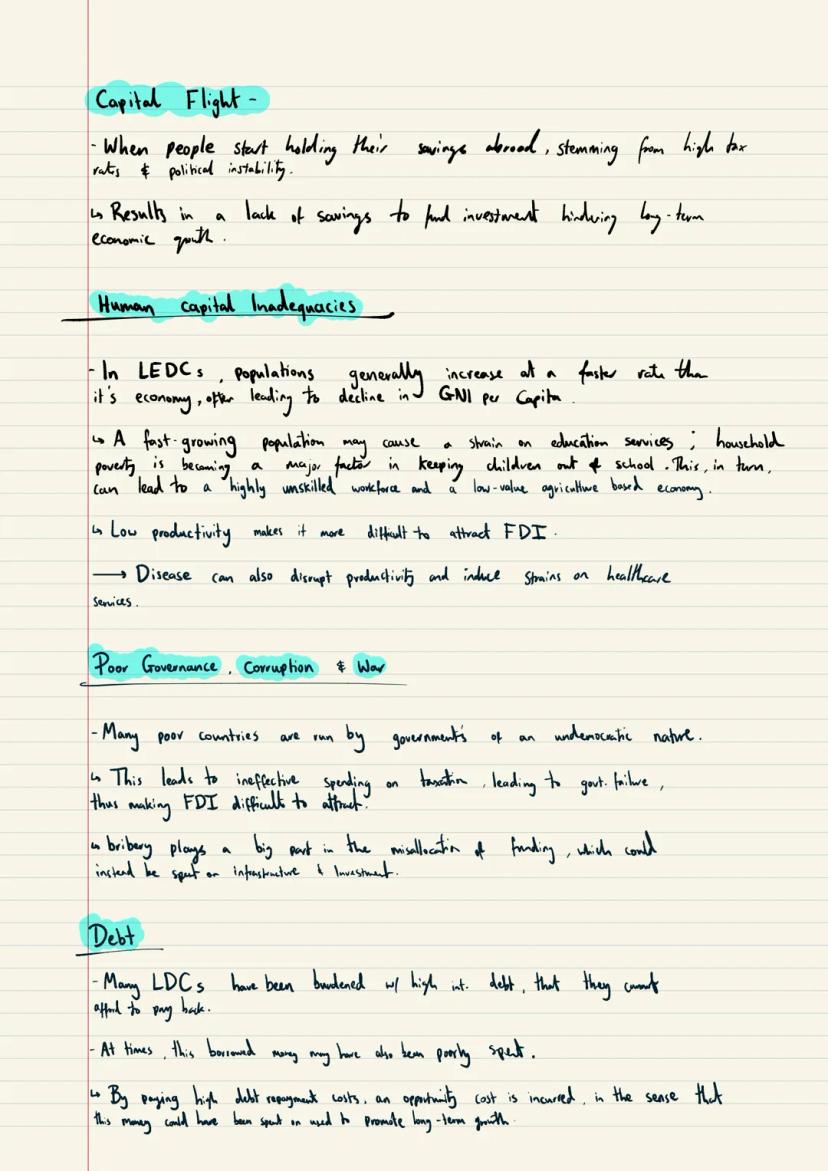 Capital Flight -
- When people start holding their savings abroad, stemming from high tax
rates & political instability.
↳ Results in a lack of savings to fund investment hindering long-term
economic growth.
Human capital Inadequacies
- In LEDCs, populations generally increase at a faster rate than
it's economy, often leading to decline in GNI per Capita.
↳ A fast-growing population may cause a strain on education services; household
poverty is becoming a major factor in keeping children out of school. This, in turn,
can lead to a highly unskilled workforce and a low-value agriculture based economy.
↳ Low productivity makes it more difficult to attract FDI.
→ Disease can also disrupt productivity and induce strains on healthcare
services.
Poor Governance, Corruption & War
- Many poor countries are run by government's of an undemocratic nature.
↳ This leads to ineffective spending on taxation, leading to govt. failure,
thus making FDI difficult to attract.
↳ bribery plays a big part in the misallocation of funding, which could
instead be spent on infrastructure & Investment.
Debt
- Many LDCs have been burdened w/ high int. debt, that they cannot
afford to pay back.
- At times, this borrowed money may have also been poorly spent.
↳ By paying high debt repayment costs, an opportunity cost is incurred, in the sense that
this money could have been spent on used to promote long-term growth.